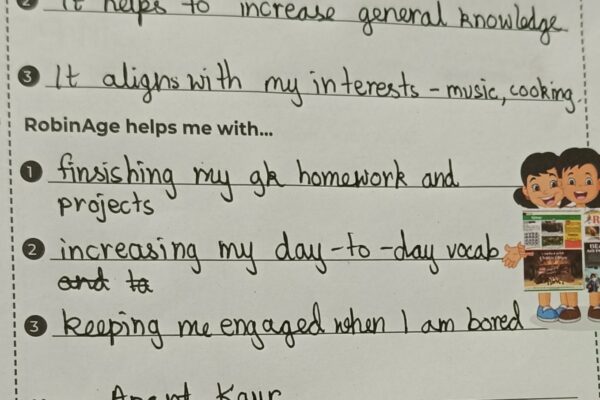 2 It helps to increase general knowledge
3 It aligns with my interests - music, cooking.
RobinAge helps me with...
1 finsishing my gk homework and
projects
2 increasing my day-to-day vocab
and to
3 keeping me engaged when I am bored
Kaur